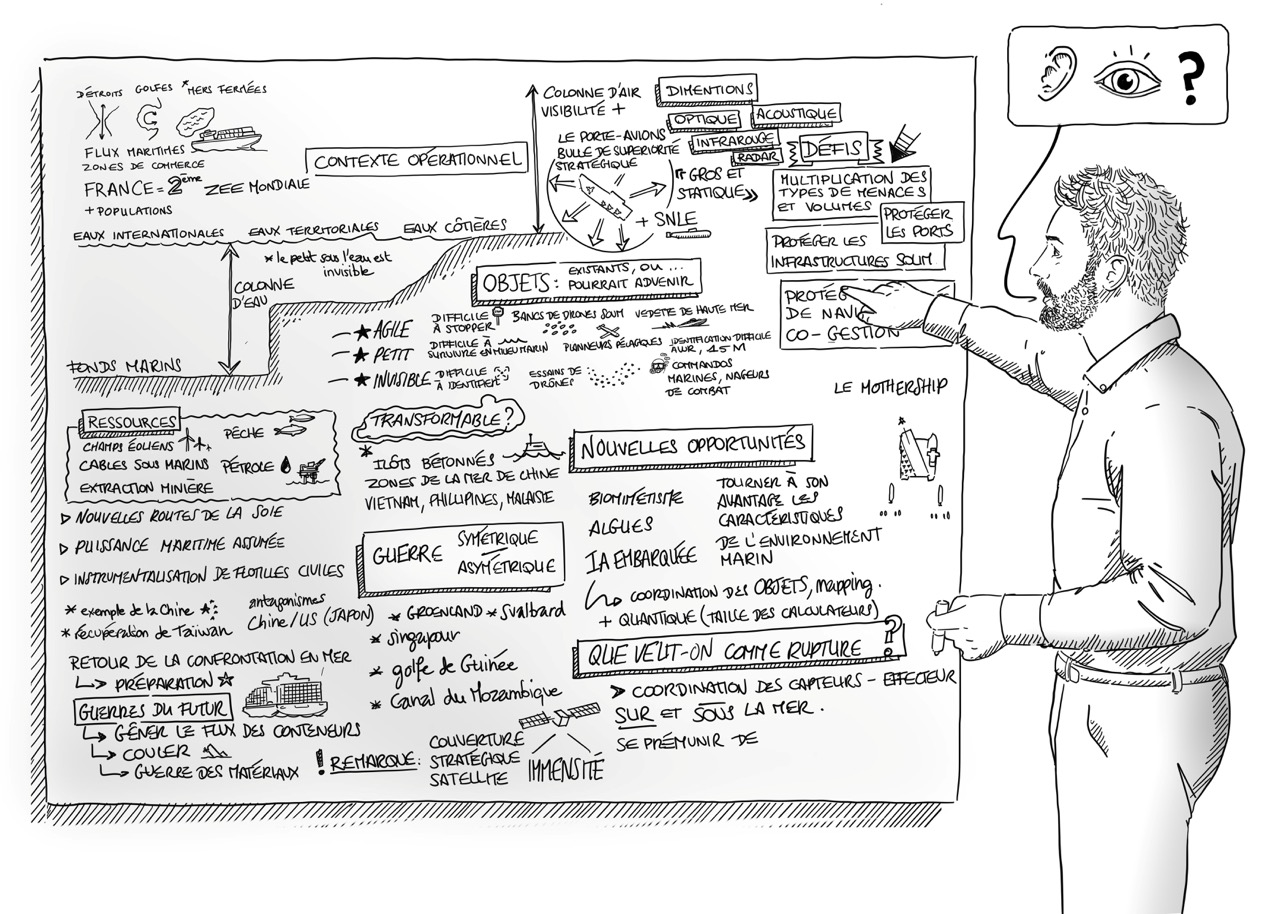 DÉTROITS
GOLFES
*MERS FERMÉES
FLUX MARITIMES
ZONES DE COMMERCE
FRANCE = 2ème ZEE MONDIALE
+ POPULATIONS
CONTEXTE OPÉRATIONNEL
EAUX INTERNATIONALES
EAUX TERRITORIALES
EAUX CÔTIÈRES
* le petit sous l'eau est
invisible
COLONNE
D'EAU
FONDS MARINS
COLONNE D'AIR
VISIBILITÉ +
LE PORTE-AVIONS
BULLE DE SUPERIORITÉ
STRATÉGIQUE
DIMENTIONS
OPTIQUE
ACOUSTIQUE
INFRAROUGE
RADAR
« GROS ET
STATIQUE »
+ SNLE
DÉFIS
MULTIPLICATION DES
TYPES DE MENACES
ET VOLUMES
PROTÉGER
LES PORTS
PROTÉGER LES
INFRASTRUCTURES SOUM
PROTÉG
DE NAVI
CO-GESTION
OBJETS : EXISTANTS, OU ...
POURRAIT ADVENIR
★ AGILE
DIFFICILE
À STOPPER
BANCS DE DRONES SOUM
VEDETTE DE HAUTE MER
★ PETIT
DIFFICILE À
SURVIVRE EN MILIEU MARIN
PLANNEURS PÉLAGIQUES
IDENTIFICATION DIFFICILE
AUV, 45M
★ INVISIBLE
DIFFICILE
À IDENTIFIER
ESSAINS DE
DRÔNES
COMMANDOS
MARINES, NAGEURS
DE COMBAT
LE MOTHERSHIP
RESSOURCES
CHAMPS ÉOLIENS
PÊCHE
CABLES SOUS MARINS
PÉTROLE
EXTRACTION MINIÈRE
▷ NOUVELLES ROUTES DE LA SOIE
▷ PUISSANCE MARITIME ASSUMÉE
▷ INSTRUMENTALISATION DE FLOTILLES CIVILES
* exemple de la Chine
* récupération de Taïwan
antagonismes
Chine/US (JAPON)
RETOUR DE LA CONFRONTATION EN MER
↳ PRÉPARATION ☆
GUERRES DU FUTUR
↳ GÊNER LE FLUX DES CONTENEURS
↳ COULER
↳ GUERRE DES MATÉRIAUX
TRANSFORMABLE ?
* ILÔTS BÉTONNÉS
ZONES DE LA MER DE CHINE
VIETNAM, PHILLIPINES, MALAISIE
GUERRE SYMÉTRIQUE
ASYMÉTRIQUE
* GROENLAND * Svalbard
* singapour
* golfe de Guinée
* Canal du Mozambique
! REMARQUE :
COUVERTURE
STRATÉGIQUE
SATELLITE
IMMENSITÉ
NOUVELLES OPPORTUNITÉS
BIOMIMÉTISME
ALGUES
IA EMBARQUÉE
TOURNER À SON
AVANTAGE LES
CARACTÉRISTIQUES
DE L'ENVIRONNEMENT
MARIN
↳ COORDINATION DES OBJETS, mapping.
+ QUANTIQUE (TAILLE DES CALCULATEURS)
QUE VEUT-ON COMME RUPTURE ?
➤ COORDINATION DES CAPTEURS - EFFECTEUR
SUR ET SOUS LA MER.
SE PRÉMUNIR DE
?